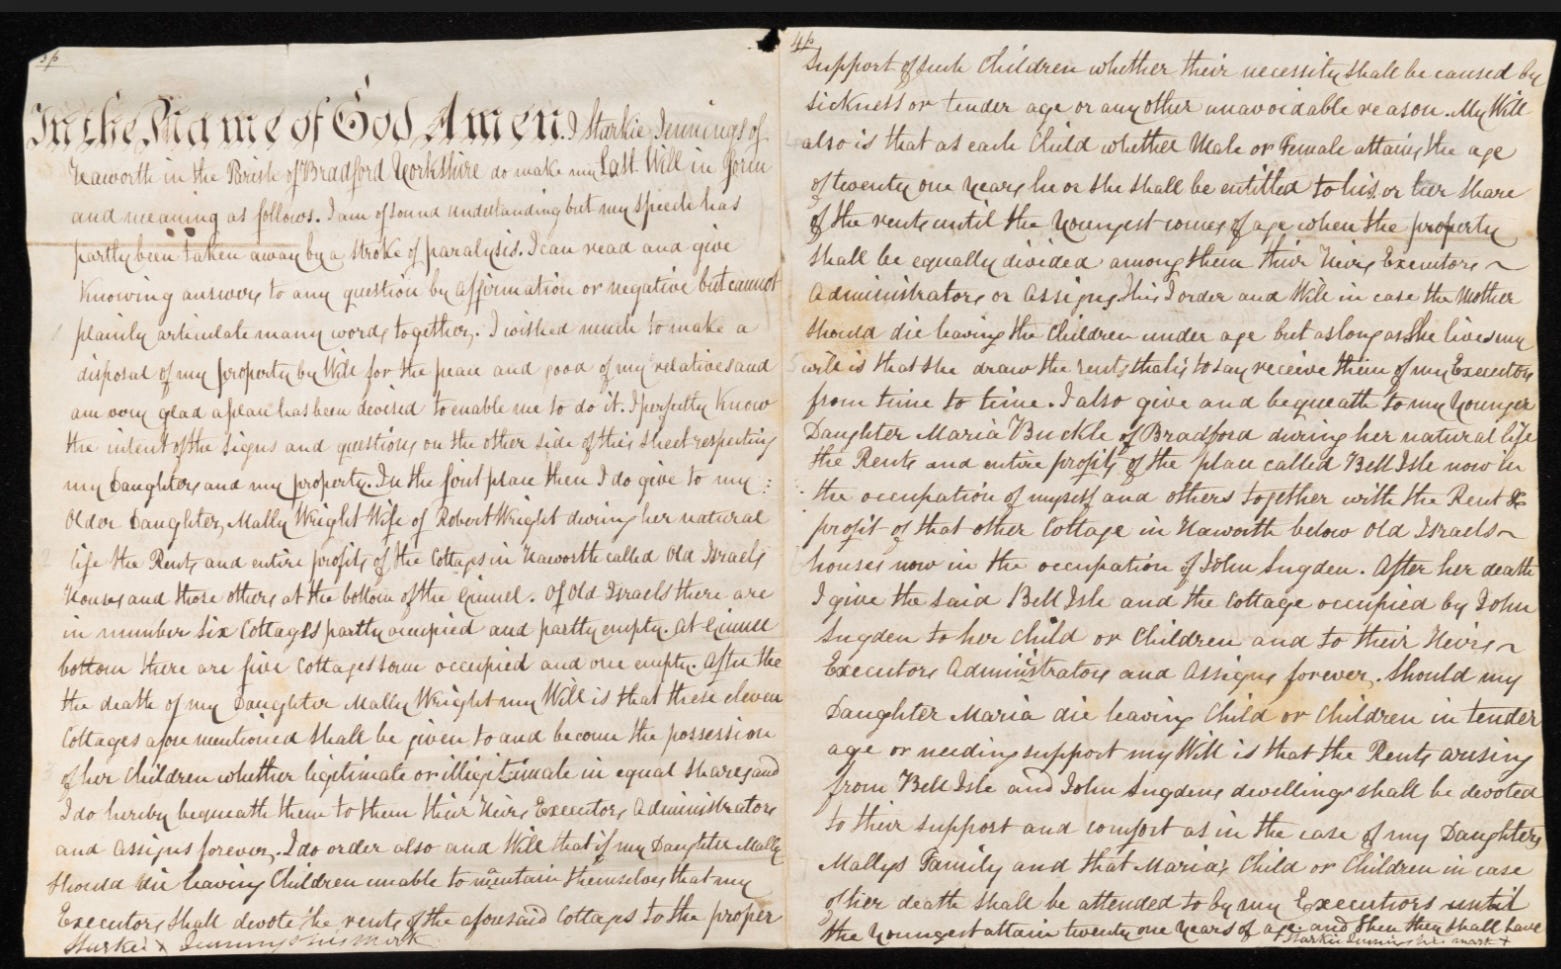 3p
In the Name of God Amen. I Starkie Jennings of
Haworth in the Parish of Bradford Yorkshire do make my Last Will in form
and meaning as follows. I am of sound understanding but my speech has
partly been taken away by a stroke of paralysis. I can read and give
knowing answers to any question by affirmation or negative but cannot
plainly articulate many words together. I wished much to make a
disposal of my property by Will for the peace and good of my relatives and
am very glad a plan has been devised to enable me to do it. I perfectly know
the intent of the signs and questions on the other side of this sheet respecting
my Daughters and my property. In the first place then I do give to my
Older Daughter, Mally Wright Wife of Robert Wright during her natural
life the Rents and entire profits of the Cottages in Haworth called Old Israels
Houses and those others at the bottom of the Ginnel. Of Old Israels there are
in number six Cottages partly occupied and partly empty. At Ginnel
bottom there are five Cottages some occupied and one empty. After the
the death of my Daughter Mally Wright my Will is that these eleven
Cottages afore mentioned shall be given to and become the possession
of her Children whether legitimate or illigitimate in equal shares and
I do hereby bequeath them to them their Heirs Executors Administrators
and Assigns forever. I do order also and Will that if my Daughter Mally
should die leaving Children unable to maintain themselves that my
Executors shall devote the rents of the aforesaid Cottages to the proper
Starkie x Jennings his mark
4p
Support of such Children whether their necessity shall be caused by
sickness or tender age or any other unavoidable reason. My Will
also is that as each Child whether Male or Female attains the age
of twenty one years he or she shall be entitled to his or her share
of the rents until the Youngest comes of age when the property
shall be equally divided among them their Heirs Executors ~
Administrators or Assigns. This I order and Will in case the Mother
should die leaving the Children under age but as long as She lives my
will is that she draw the rents that is to say receive them of my Executors
from time to time. I also give and bequeath to my Younger
Daughter Maria Buckle of Bradford during her natural life
the Rents and entire profits of the place called Bell Isle now in
the occupation of myself and others together with the Rent &
profit of that other Cottage in Haworth below Old Israels ~
houses now in the occupation of John Sugden. After her death
I give the said Bell Isle and the Cottage occupied by John
Sugden to her Child or Children and to their Heirs ~
Executors Administrators and Assigns forever. Should my
Daughter Maria die leaving Child or Children in tender
age or needing support my Will is that the Rents arising
from Bell Isle and John Sugdens dwelling shall be devoted
to their support and comfort as in the case of my Daughters
Mallys Family and that Maria's Child or Children in case
of her death shall be attended to by my Executiors until
the Youngest attain twenty one Years of age and then they shall have
Starkie Jennings his mark +